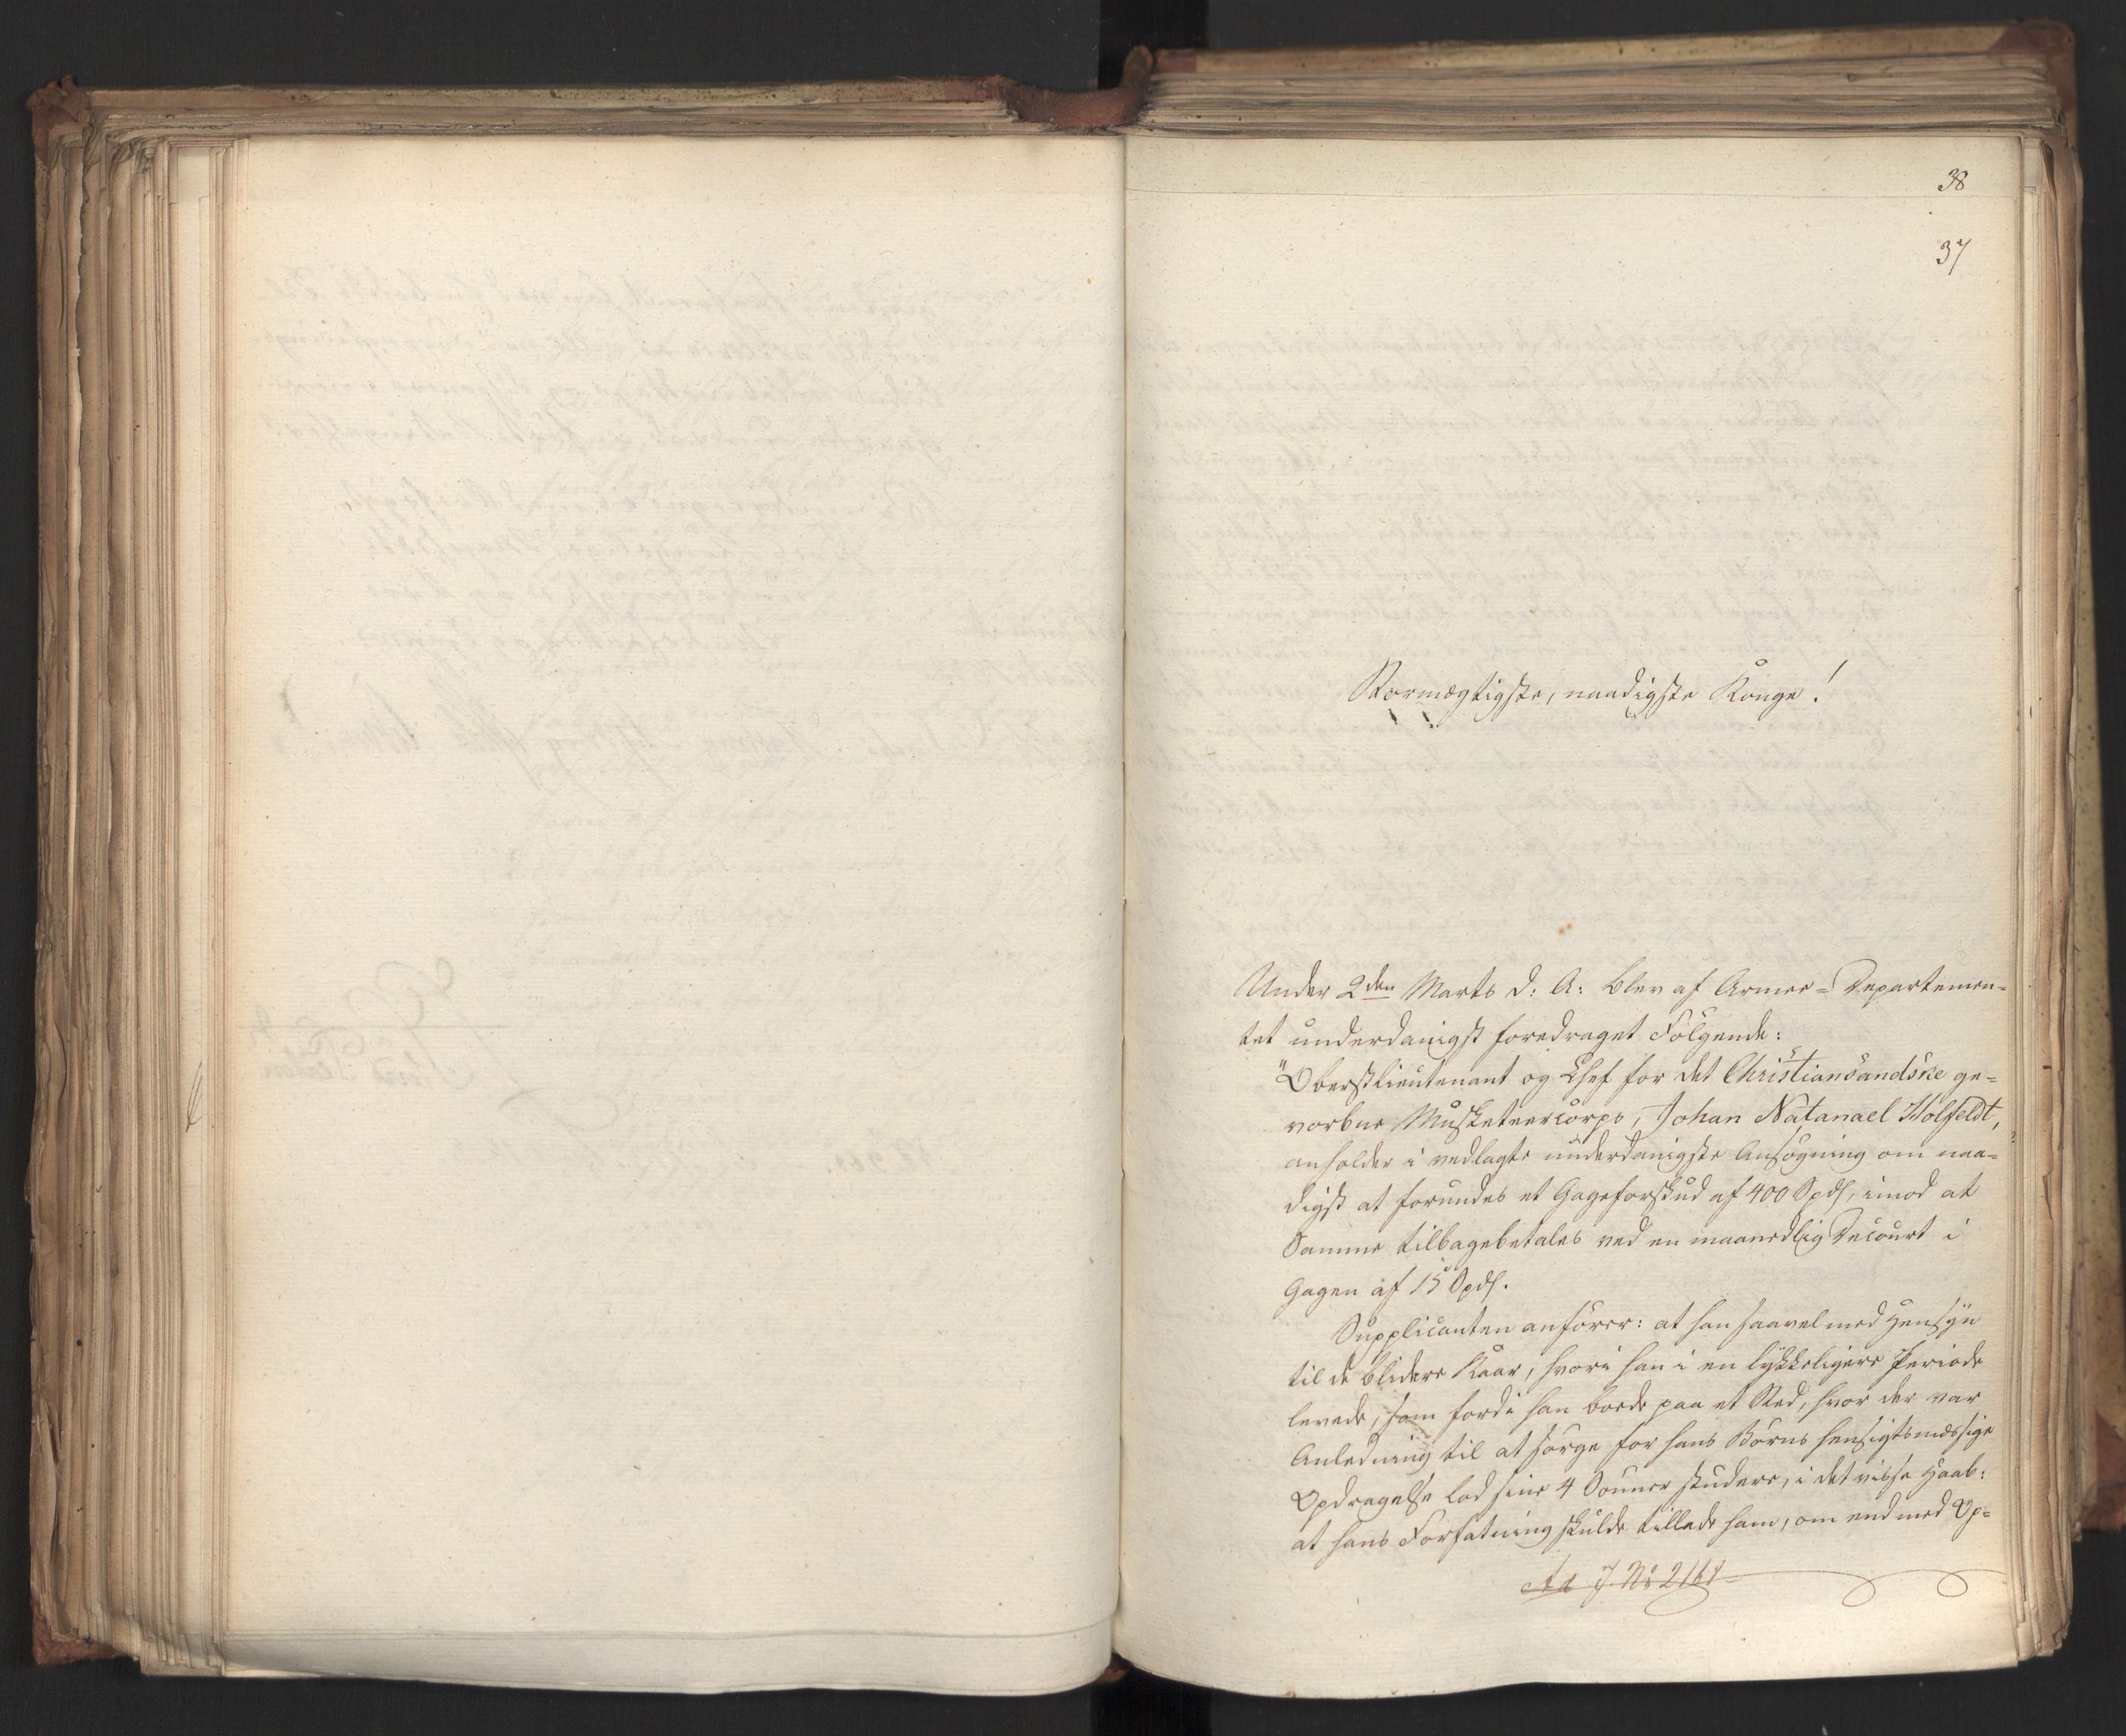 38
37
Stormægtigste, naadigste Konge!
Under 2den Marts d: A: blev af Armee=Departemen=
tet underdanigst foredraget Følgende:
"Oberstlieutenant og Chef for det Christiansandske ge=
vorbne Musketeercorps, Johan Natanael Holfeldt,
anholder i vedlagte underdanigste Ansøgning om naa=
digst at forundes et Gageforskud af 400 Spds, imod at
Samme tilbagebetales ved en maanedlig Decourt i
Gagen af 15 Spds.
Supplicanten anfører: at han saavel med Hensyn
til de blidere Kaar, hvori han i en lykkeligere Periode
levede, som fordi han boede paa et Sted, hvor der var
Anledning til at sørge for hans Børns hensigtsmæssige
Opdragelse lod sine 4 Sønner studere, i det visse Haab:
at hans Forfatning skulde tillade ham, om end med Op=
Ad J. No 2161